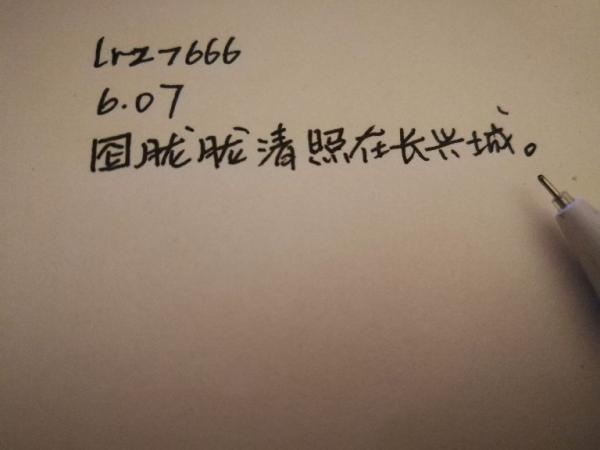 lrz7666
6.07
囶胧胧清照在长兴城。